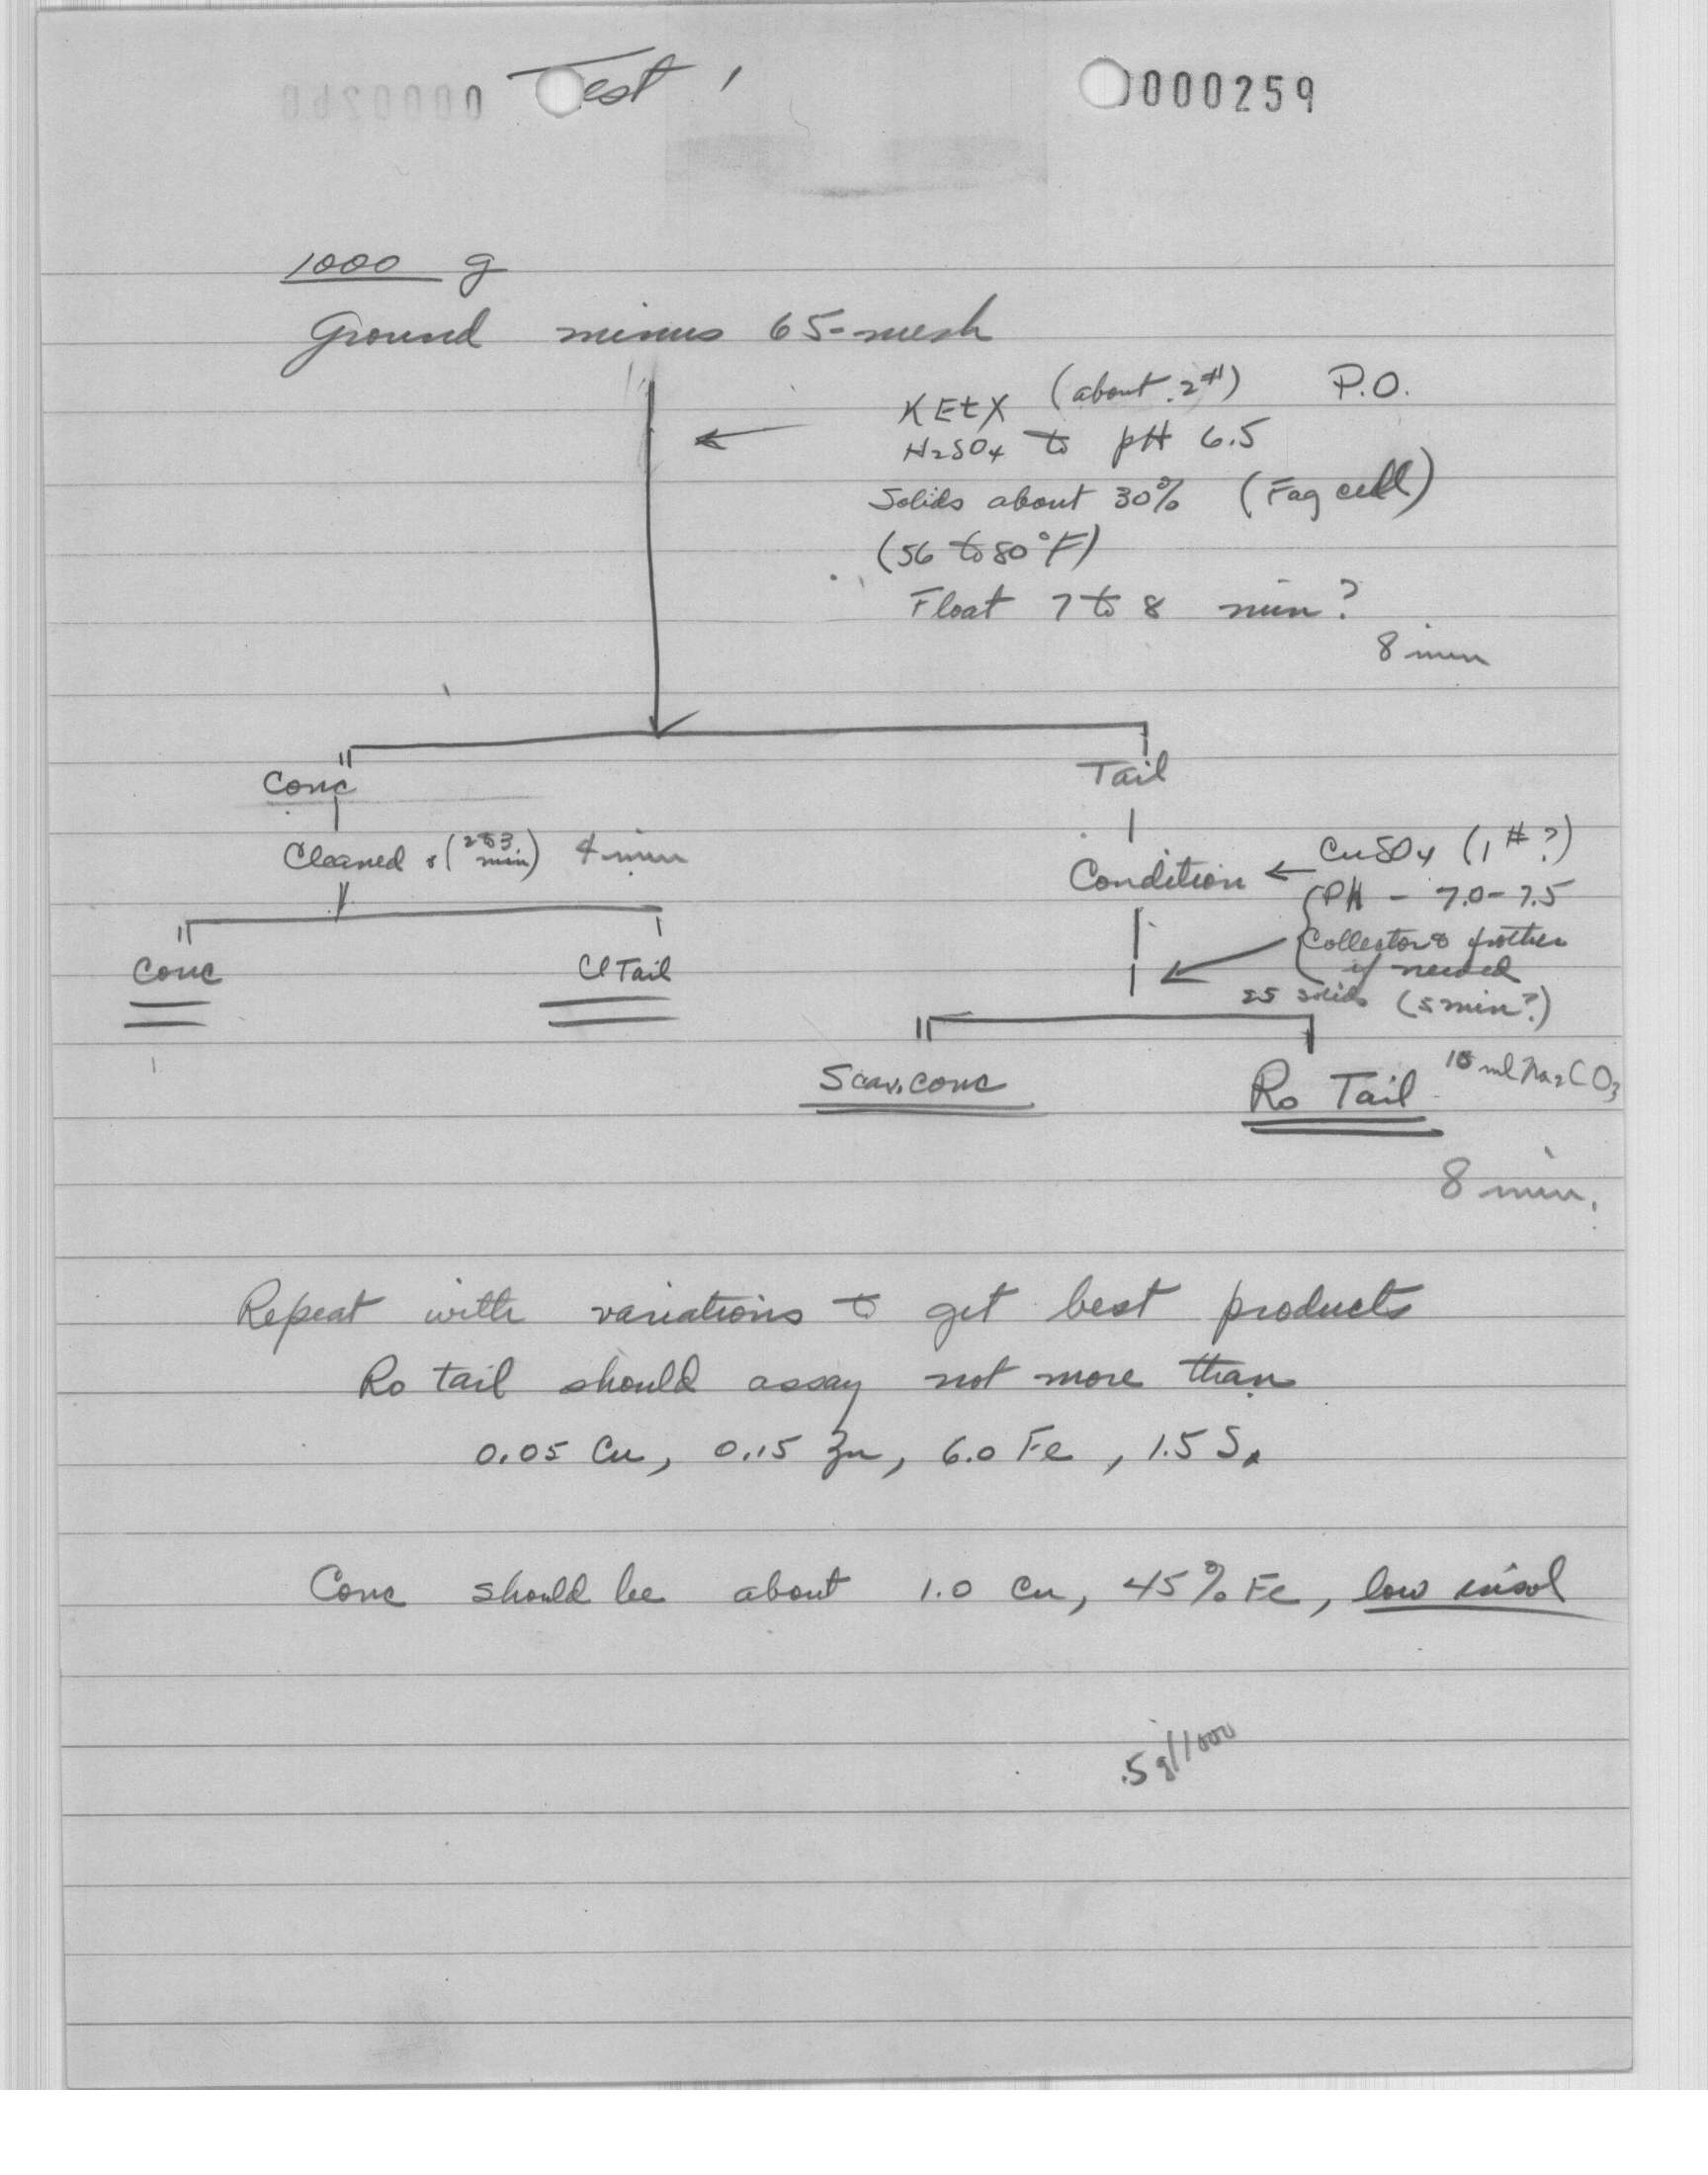 Test 1
0000259
1000 g
Ground minus 65-mesh
KEtX (about .2#) P.O.
H2SO4 to pH 6.5
Solids about 30% (Fag cell)
(56 to 80°F)
Float 7 to 8 min?
8 min
Conc
Tail
Cleaned (2 to 3 min) 4 min
Condition ← CuSO4 (1 #?)
PH - 7.0-7.5
Collector & frother
if needed
25 solids (5 min?)
Conc
Cl Tail
Scav. conc
Ro Tail
10 ml Na2CO3
8 min.
Repeat with variations to get best products
Ro tail should assay not more than
0.05 Cu, 0.15 Zn, 6.0 Fe, 1.5 S.
Conc should be about 1.0 Cu, 45% Fe, low insol
.5 g/1000